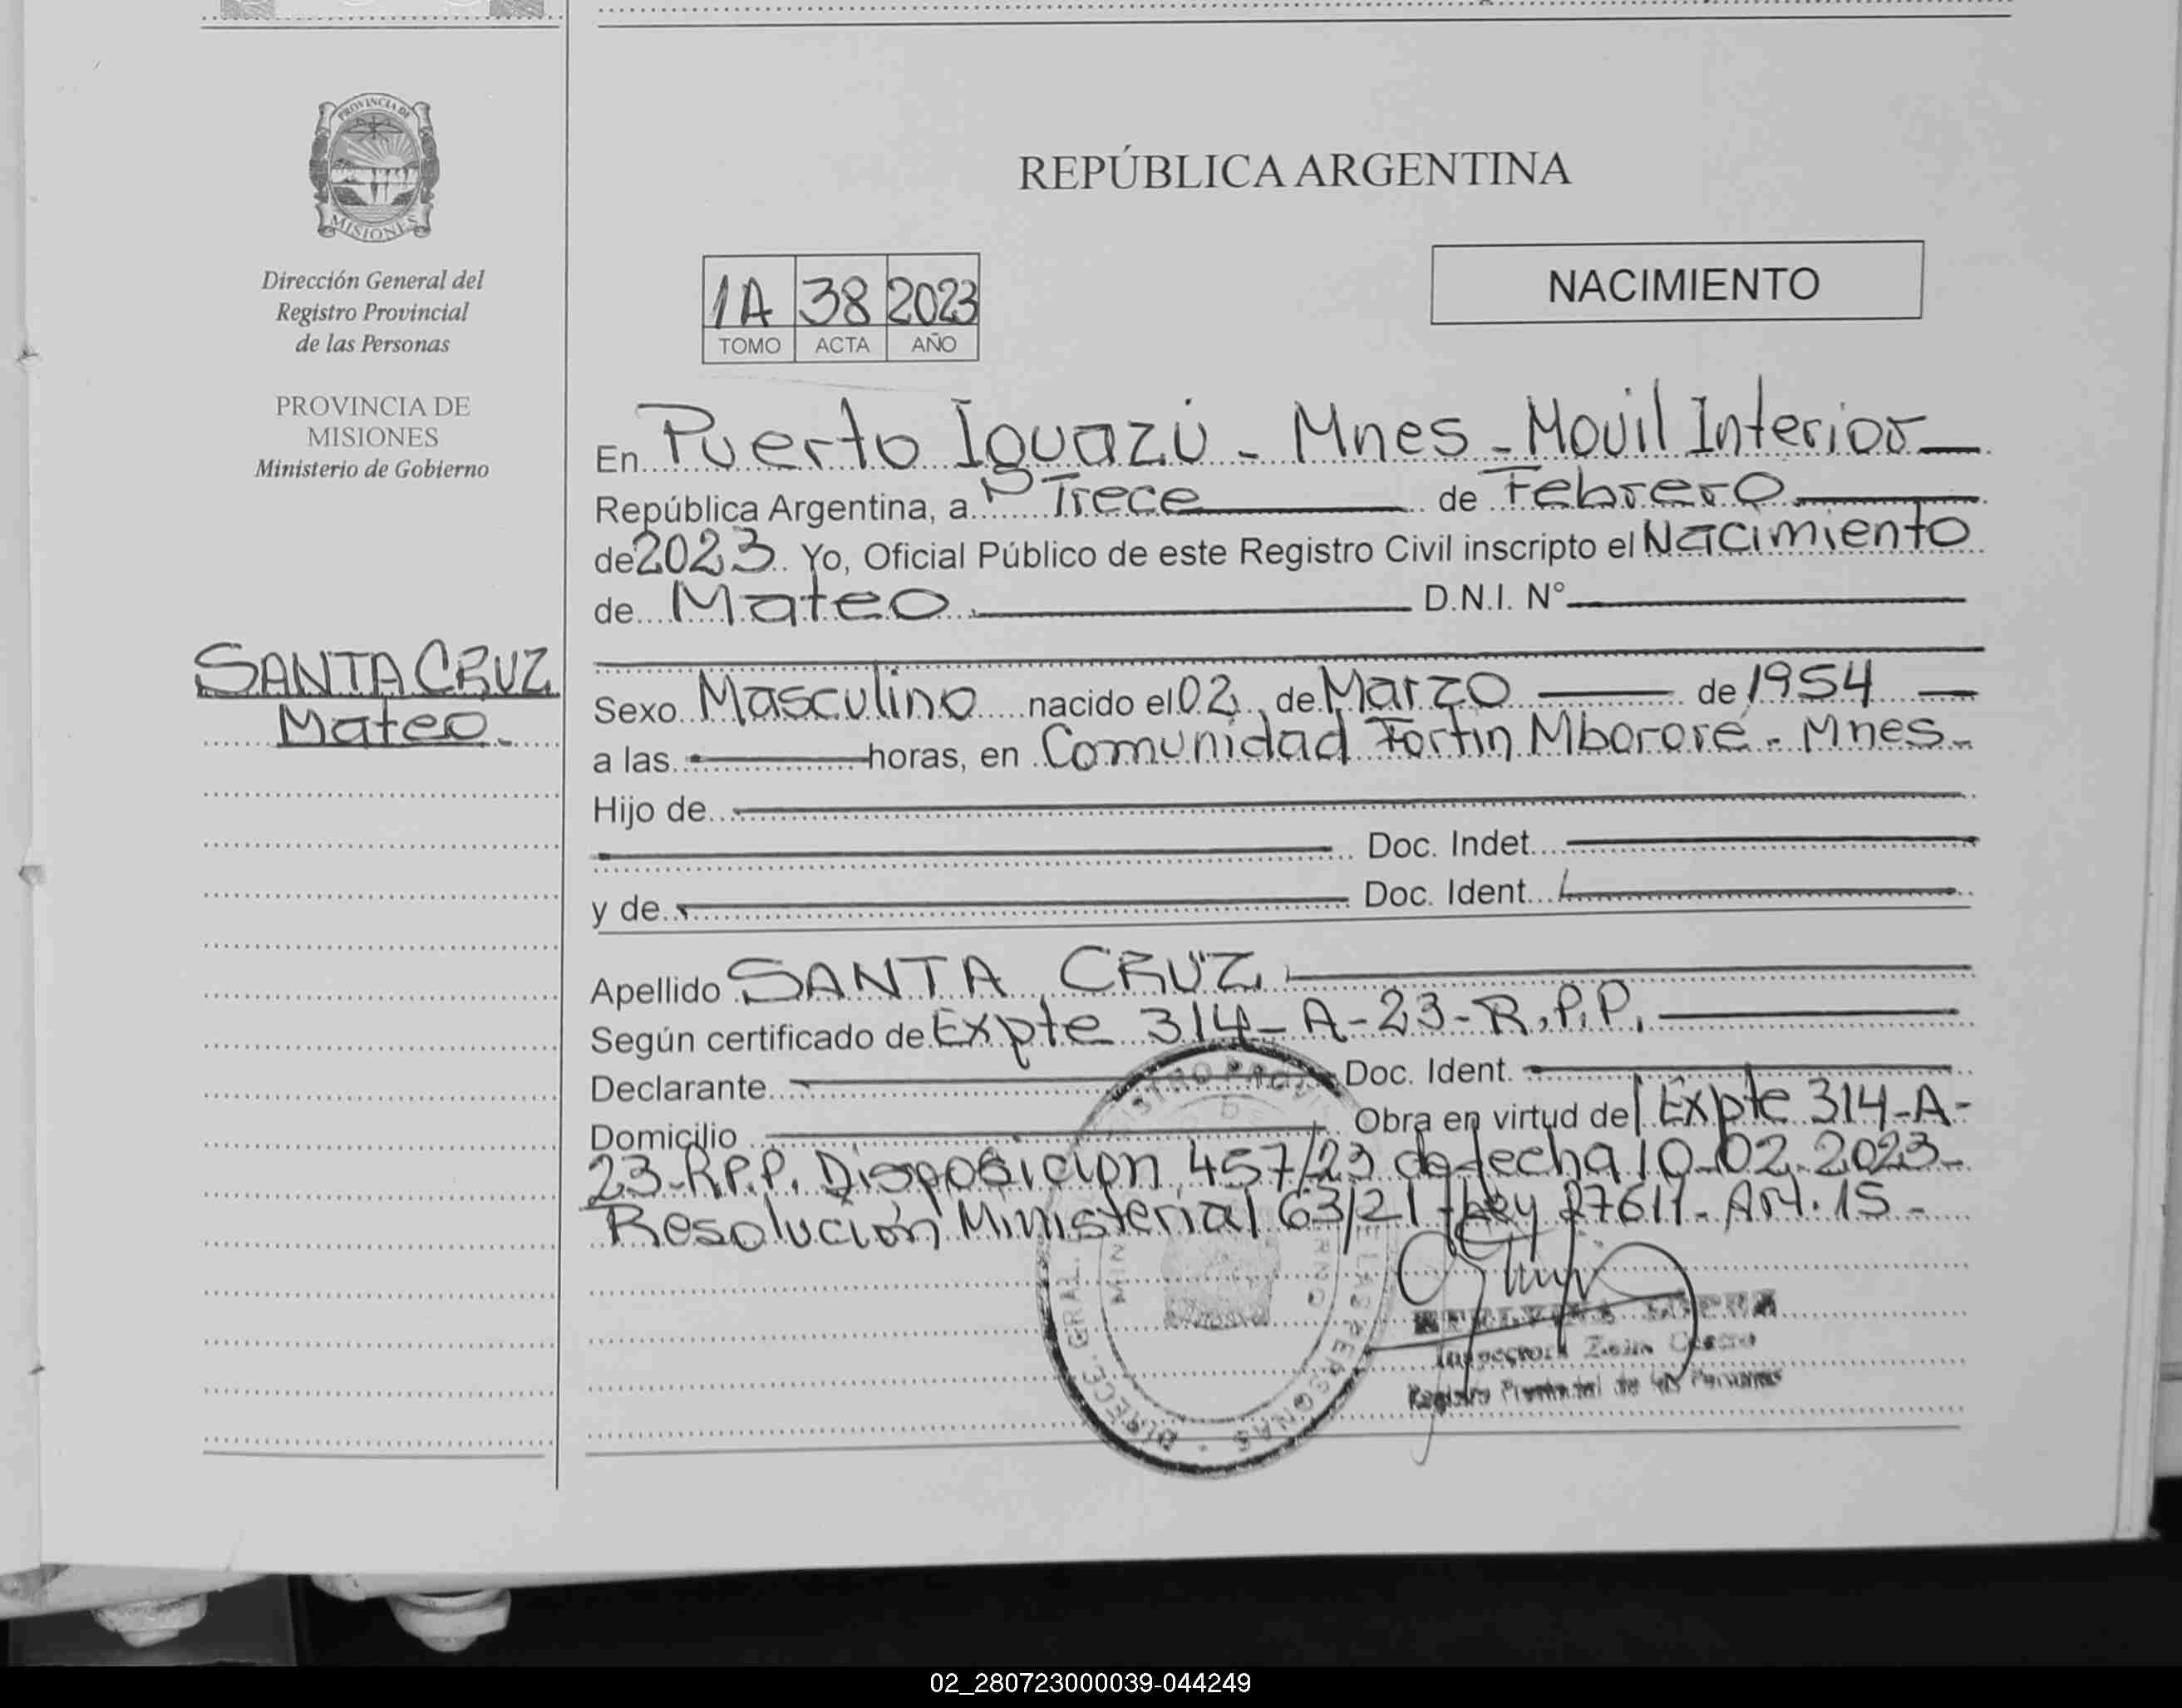 PROVINCIA DE
MISIONES
Dirección General del
Registro Provincial
de las Personas
PROVINCIA DE
MISIONES
Ministerio de Gobierno
SANTA CRUZ
Mateo.
REPÚBLICA ARGENTINA
1A 38 2023
TOMO ACTA AÑO
NACIMIENTO
En Puerto Iguazú - Mnes - Movil Interior
República Argentina, a Trece de Febrero
de 2023. Yo, Oficial Público de este Registro Civil inscripto el Nacimiento
de Mateo. D.N.I. N°
Sexo Masculino nacido el 02 de Marzo de 1954
a las horas, en Comunidad Fortin Mbororé - Mnes -
Hijo de
Doc. Indet.
y de Doc. Ident.
Apellido SANTA CRUZ
Según certificado de Expte 314-A-23-R.P.P.
Declarante Doc. Ident.
Domicilio Obra en virtud del Expte 314-A-
23-R.P.P. Disposicion 457/23 de fecha 10-02-2023-
Resolución Ministerial 63/21 - Ley 27611 - Art. 15 -
Inspectora Zona
Registro Provincial de las Personas
DIRECC. GRAL. PERSONAS
02_280723000039-044249